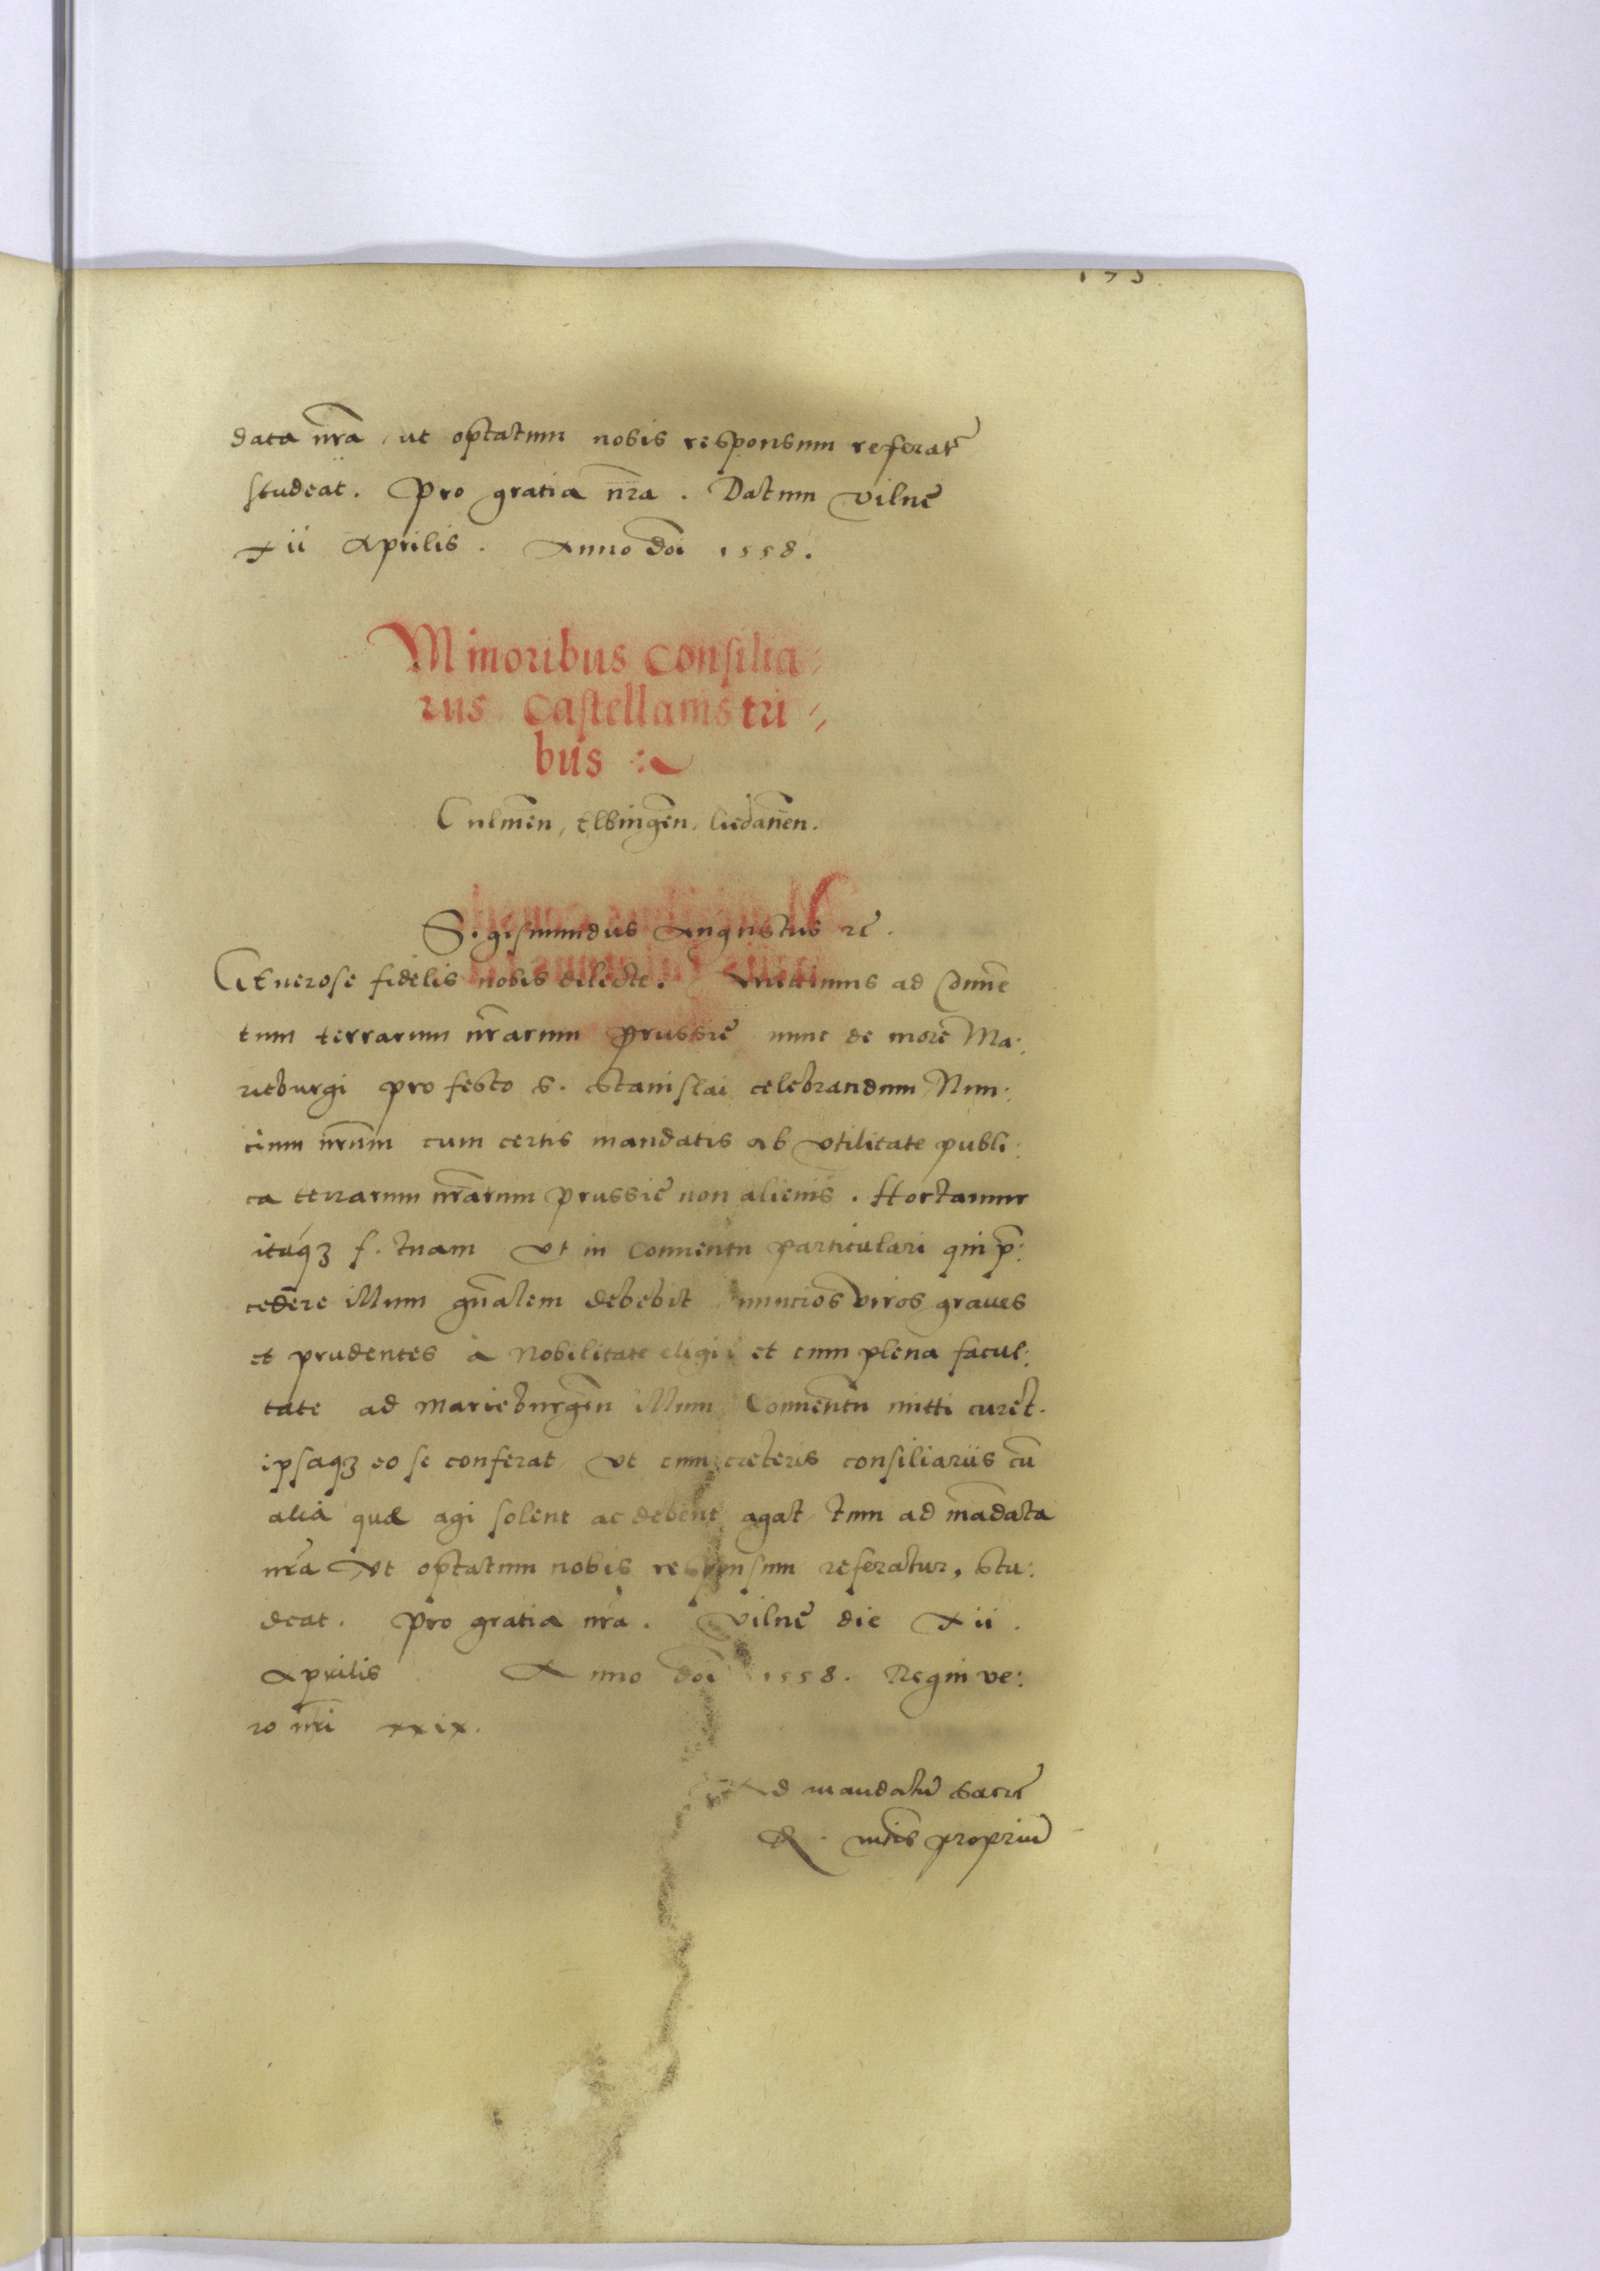 data nr̃a, ut optatum nobis responsum referat᷑
studeat. Pro gratia nr̃a. Datum Vilnę
xii Aprilis. Anno dñi 1558.
Minoribus Consilia⸗
riis Castellanis tri⸗
bus
Culmeñ, Elbingeñ,
Sigismundus Augustus rē.
Generose fidelis nobis dilecte. Mittimus ad Conuē
tum terrarum nr̃arum Prussię nunc de more Ma:
rieburgi pro festo S. Stanislai celebrandum Nun:
cium nr̃um cum certis mandatis ab vtilitate publi:
ca terrarum nr̃arum Prussię non alienis. Hortamur
itaq₃ f. tuam vt in Conuentu particulari qui p̄:
cedere illum gñalem debebit nuncios viros graues
et prudentes à Nobilitate eligi et cum plena facul:
tate ad Marieburgeñ illum Conuentū mitti curet.
ipsaq₃ eo se conferat, vt cum cæteris consiliariis cū
alia quæ agi solent ac debent agat, tum ad mandata
nr̃a vt optatum nobis responsum referatur, stu:
deat. Pro gratia nr̃a. Vilnę die xii.
Aprilis Anno dñi 1558. Regni ve:
ro nr̃i xxix.
Ad mandatū Sacrę
R. mtis propriū